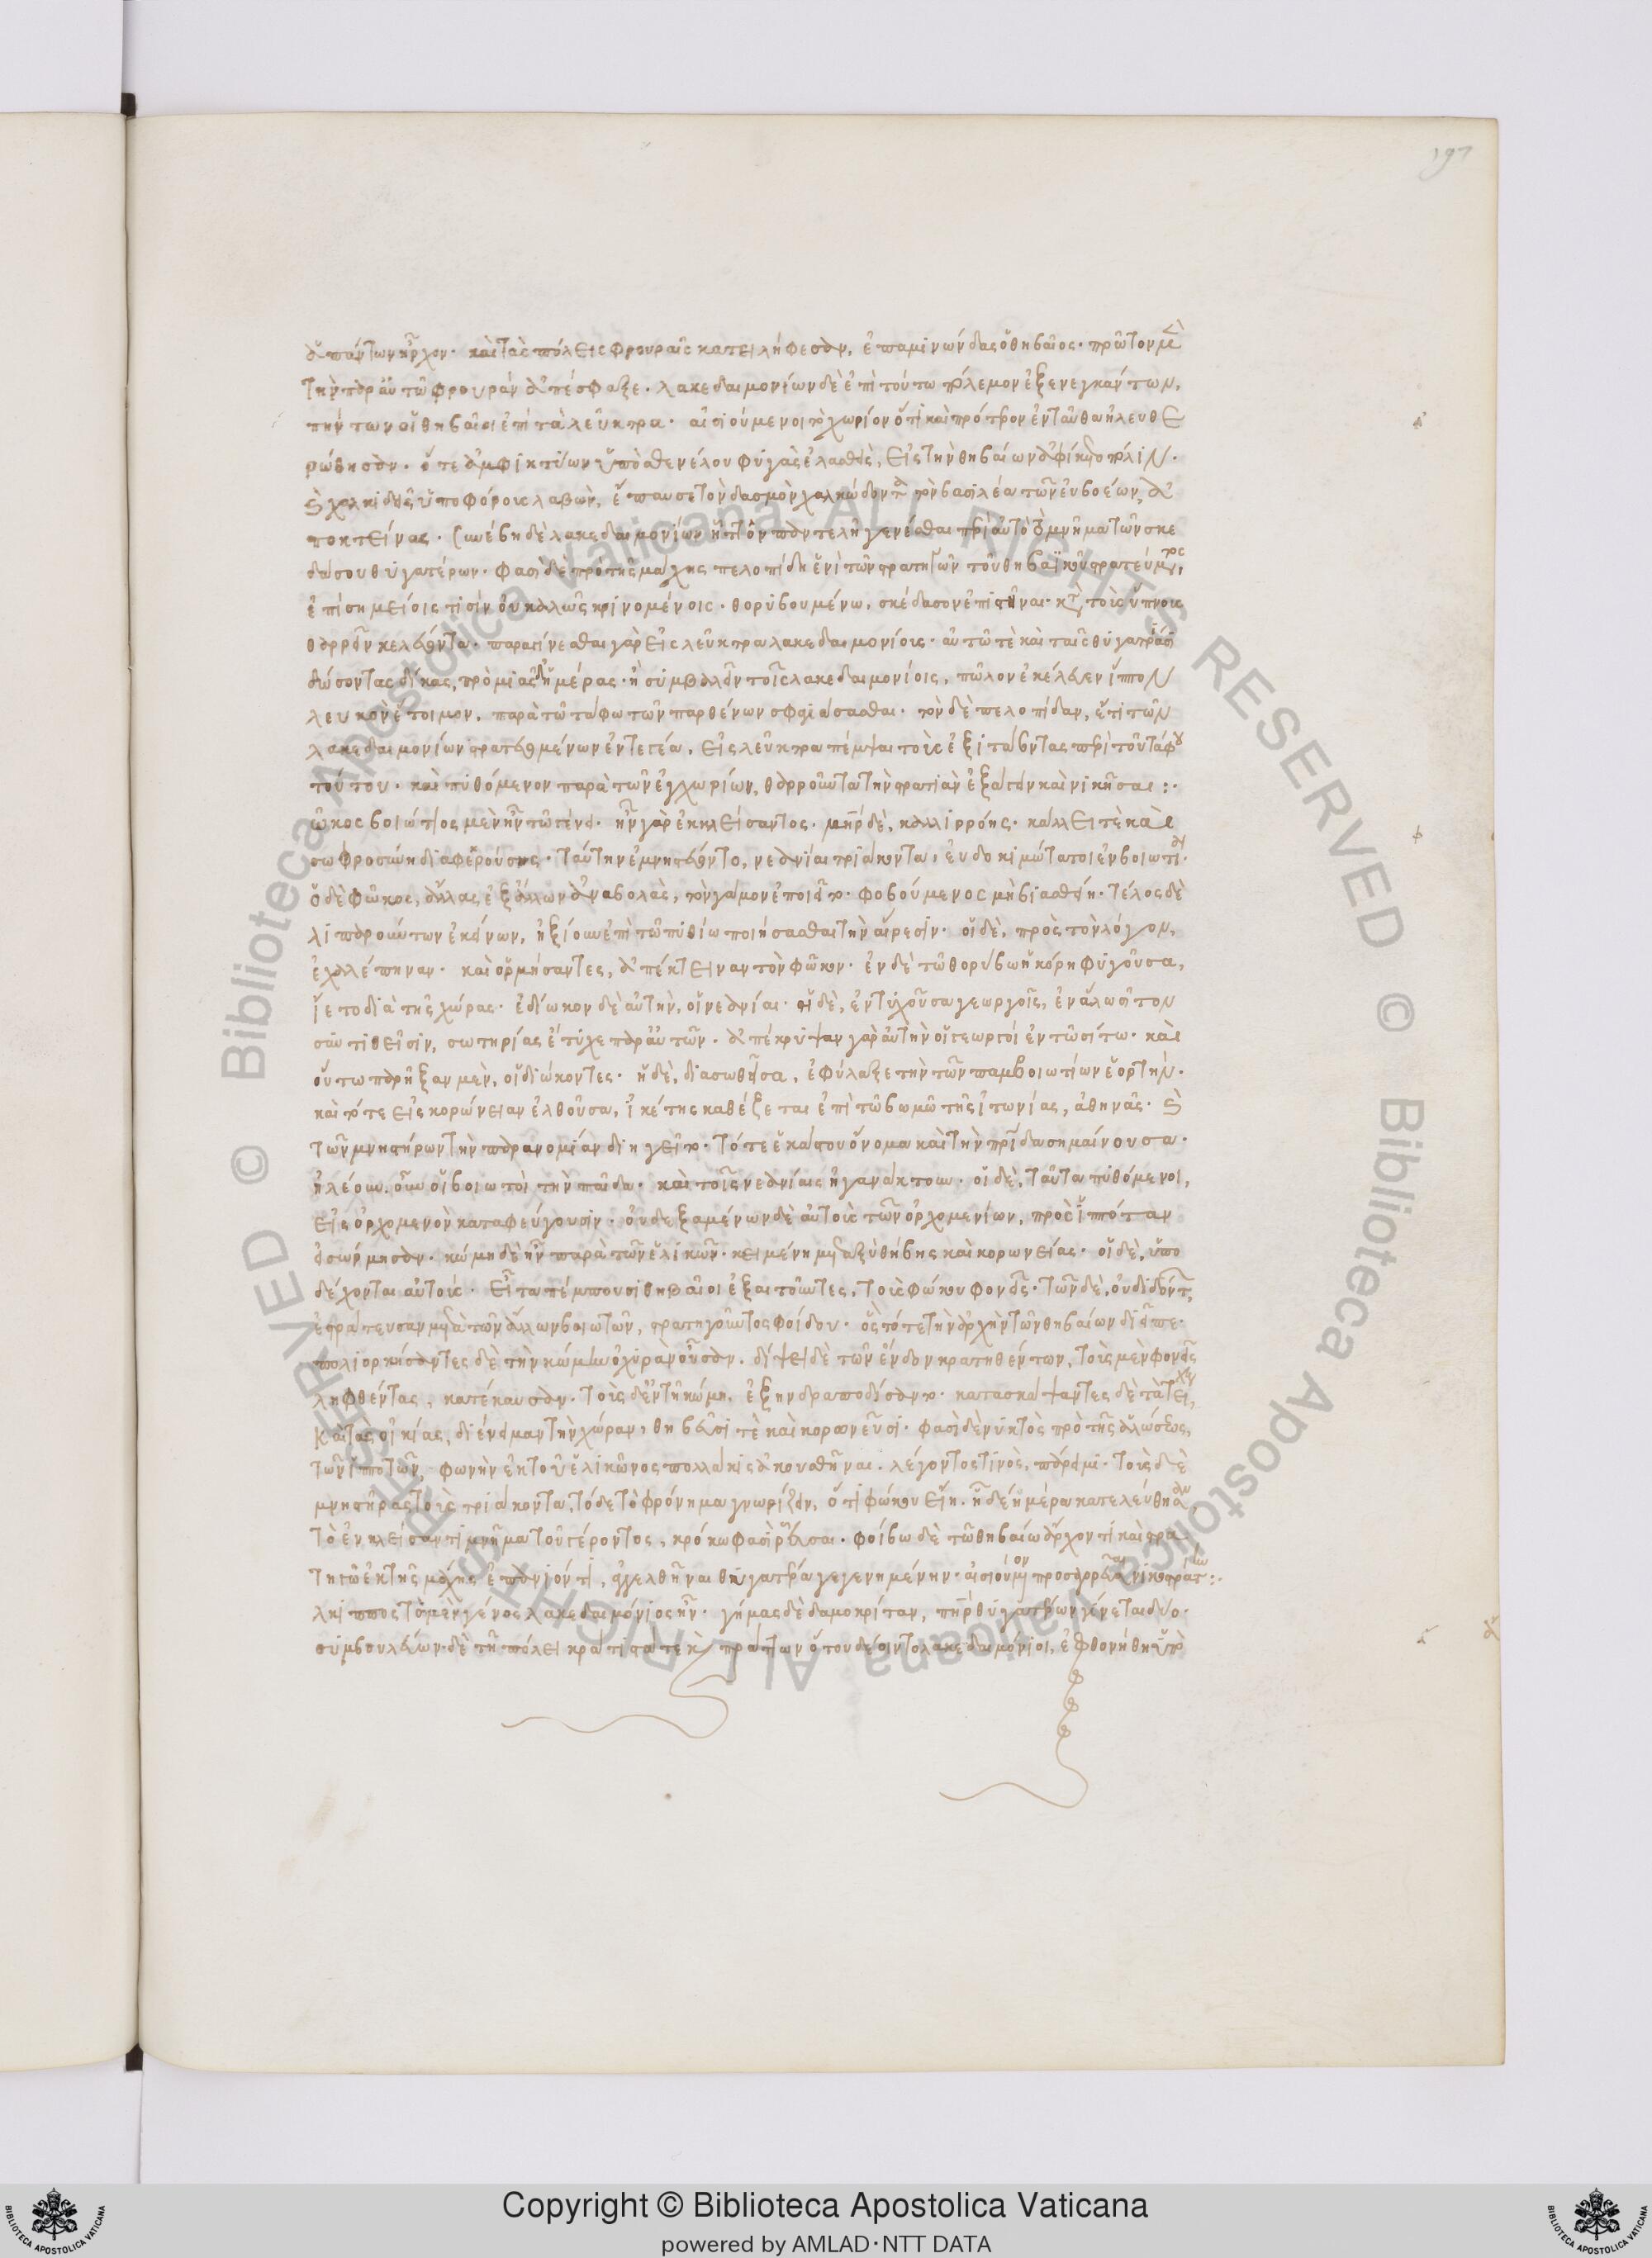 197
ἁπάντων ἦρχον· καὶ τὰς πόλεις φρουραῖς κατειλήφεσαν, ἐπαμινώνδας ὁ θηβαῖος· πρῶτον μὲν
τὴν παρ' αὑτῷ φρουρὰν ἀπέσφαξε· λακεδαιμονίων δὲ ἐπὶ τούτω πόλεμον ἐξενεγκάντων,
ἀπήντων οἱ θηβαῖοι ἐπὶ τὰ λεῦκτρα· αἰσιούμενοι τὸ χωρίον ὅτι καὶ πρότερον ἐνταῦθα ἠλευθε
ρώθησαν· ὅτε ἀμφικτύων ὑπὸ σθενέλου φυγὰς ἐλασθεὶς, εἰς τὴν θηβαίων ἀφίκετο πόλιν·
καὶ χαλκιδεῦσιν ὑποφόρους λαβὼν, ἔπαυσε τὸν δασμὸν χαλκώδοντα τὸν βασιλέα τῶν εὐβοέων ἀ
ποκτείνας· συνέβη δὲ λακεδαιμονίων ἧτταν παντελῆ γενέσθαι περὶ αὐτὸ τὸ μνῆμα τῶν σκε
δάσου θυγατέρων· φασὶ δὲ πρὸ τῆς μάχης πελοπίδη ἑνὶ τῶν στρατηγῶν τοῦ θηβαϊκοῦ στρατεύματος
ἐπὶ σημείοις τισὶν οὐ καλῶς κρινομένοις· θορυβουμένω, σκέδασον ἐπιστῆναι· κατὰ τοὺς ὕπνους
θαρρεῖν κελεύοντα· παραγίνεσθαι γὰρ εἰς λεῦκτρα λακεδαιμονίους· αὐτῷ τὲ καὶ ταῖς θυγατράσι
δώσοντας δίκας, πρὸ μιᾶς δὲ ἡμέρας· ἢ συμβαλεῖν τοῖς λακεδαιμονίοις, πῶλον ἐκέλευεν ἵππου
λευκὸν ἕτοιμον, παρὰ τῷ τάφω τῶν παρθένων σφαγιάσασθαι· τὸν δὲ πελοπίδαν, ἔτι τῶν
λακεδαιμονίων στρατευομένων ἐν τεγέα, εἰς λεῦκτρα πέμψαι τοὺς ἐξετάσοντας περὶ τοῦ τάφου
τούτου· καὶ πυθόμενον παρὰ τῶν ἐγχωρίων, θαρροῦντα τὴν στρατιὰν ἐξαγαγεῖν καὶ νικῆσαι :·
ῶκος βοιώτιος μὲν ἦν τῷ γένει· ἦν γὰρ ἐκ κλείσαντος· πατὴρ δὲ, καλλιρρόης· κάλλει τὲ καὶ
σωφροσύνη διαφερούσης· ταύτην ἐμνηστεύοντο, νεανίαι τριάκοντα, εὐδοκιμώτατοι ἐν βοιωτίᾳ·
ὁ δὲ φῶκος, ἄλλας ἐξ ἄλλων ἀναβολὰς, τῶν γάμων ἐποιεῖτο· φοβούμενος μὴ βιασθείη· τέλος δὲ
λιπαρούντων ἐκείνων, ἠξίου ἐπὶ τῷ πυθίω ποιήσασθαι τὴν αἵρεσιν· οἱ δὲ, πρὸς τὸν λόγον,
ἐχαλέπηναν· καὶ ὁρμήσαντες, ἀπέκτειναν τὸν φῶκον· ἐν δὲ τῷ θορύβω ἡ κόρη φυγοῦσα,
ἵετο διὰ τῆς χώρας· ἐδίωκον δὲ αὐτὴν, οἱ νεανίαι· ἡ δὲ, ἐντυχοῦσα γεωργοῖς, ἐν ἅλωσι τον
συντιθεῖσιν, σωτηρίας ἔτυχε παρ' αὐτῶν· ἀπέκρυψαν γὰρ αὐτὴν οἱ γεωργοὶ ἐν τῷ σίτω· καὶ
οὕτω παρῆξαν μὲν, οἱ διώκοντες· ἡ δὲ, διασωθεῖσα, ἐφύλαξε τὴν τῶν παμβοιωτίων ἑορτήν·
καὶ τότε εἰς κορώνειαν ἐλθοῦσα, ἱκέτης καθέζεται ἐπὶ τῷ βωμῷ τῆς ἰτωνίας, ἀθηνᾶς· καὶ
τῶν μνηστήρων τὴν παρανομίαν διηγεῖτο· τό τε ἑκάστου ὄνομα καὶ τὴν πατρίδα σημαίνουσα·
ἠλέουν οὖν οἱ βοιωτοὶ τὴν παῖδα· καὶ τοῖς νεανίαις ἠγανάκτουν· οἱ δὲ, ταῦτα πυθόμενοι,
εἰς ὀρχομενὸν καταφεύγουσιν· οὐ δεξαμένων δὲ αὐτοὺς τῶν ὀρχομενίων, πρὸς ἱππόταν
εἰσώρμησαν· κώμη δὲ ἦν παρὰ τῶν ἑλικῶν· κειμένη μεταξὺ θήβης καὶ κορωνείας· οἱ δὲ, ὑπο
δέχονται αὐτούς· εἶτα πέμπουσι θηβαῖοι ἐξαιτοῦντες, τοὺς φώκου φονεῖς· τῶν δὲ, οὐ διδόντων,
ἐστράτευσαν μετὰ τῶν ἄλλων βοιωτῶν, στρατηγοῦντος φοίδου· ὃς τότε τὴν ἀρχὴν τῶν θηβαίων διεῖπε·
πολιορκήσαντες δὲ τὴν κώμην ὀχυρὰν οὖσαν· δίψει δὲ τῶν ἔνδον κρατηθέντων, τοὺς μὲν φονεῖς
ληφθέντας, κατέκαυσαν· τοὺς δ' ἐν τῇ κώμη, ἐξηνδραποδίσαντο· κατασκάψαντες δὲ τὰ τείχη,
καὶ τὰς οἰκίας, διένειμαν τὴν χώραν, θηβαίοις τὲ καὶ κορωνεῦσι· φασὶ δὲ νυκτὸς πρὸ τῆς ἁλώσεως,
τῶν ἱπποτῶν, φωνὴν ἐκ τοῦ ἑλικῶνος πολλάκις ἀκουσθῆναι· λέγοντός τινος, πάρειμι· τοὺς δὲ
μνηστῆρας τοὺς τριάκοντα, τόδε τὸ φρόνημα γνωρίζειν, ὅτι φώκου εἴη· ᾗ δὲ ἡμέρα κατελεύσθησαν,
τὸ ἐν κλείσαντι μνῆμα τοῦ γέροντος, κρόκω φασὶ ῥεῦσαι· φοίβω δὲ τῷ θηβαίω ἄρχοντι καὶ στρα
τηγῷ ἐκ τῆς μάχης ἐπανιόντι, ἀγγελθῆναι θυγατέρα γεγενημένην· αἰσιούμενον προσαγορεῦσαι νικοστράτω :·
λκιππος τὸ μὲν γένος λακεδαιμόνιος ἦν· γήμας δὲ δαμοκρίταν, πατὴρ θυγατέρων γίνεται δύο·
συμβουλεύων δὲ τῇ πόλει κράτιστά τε καὶ πράττων ὅτου δέοιντο λακεδαιμόνιοι, ἐφθονήθη ὑπὸ